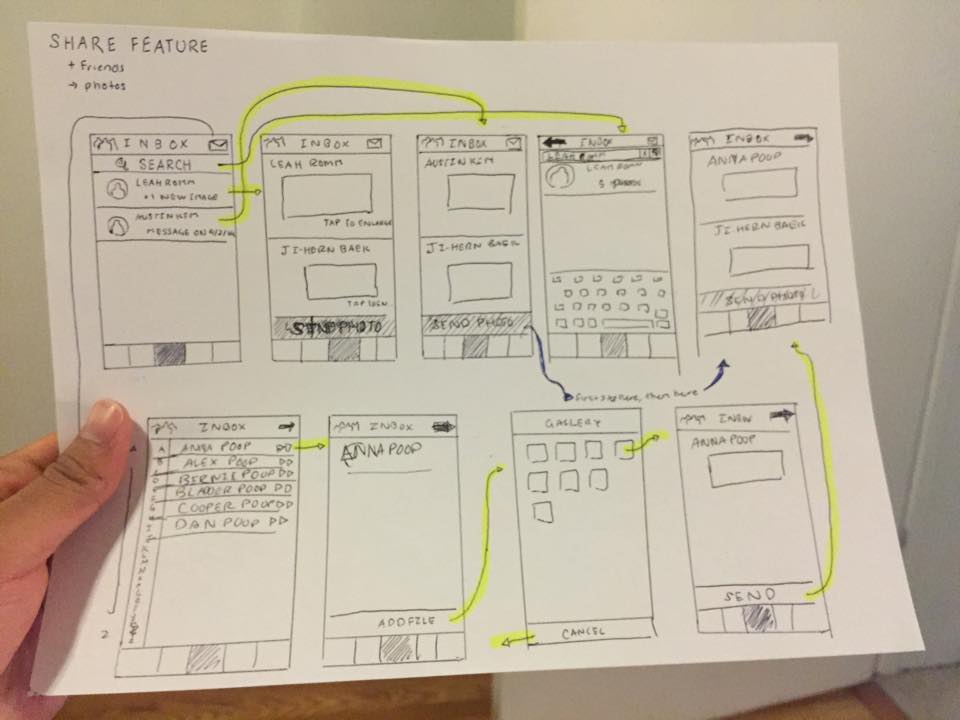 SHARE FEATURE
+ Friends
→ photos
INBOX
SEARCH
LEAH ROMM
+1 NEW IMAGE
AUSTIN KIM
MESSAGE ON
INBOX
LEAH ROMM
TAP TO ENLARGE
JI-HERN BAEK
SEND PHOTO
INBOX
AUSTIN KIM
JI-HERN BAEK
SEND PHOTO
INBOX
LEAH ROMM
LEAH ROMM
INBOX
ANNA POOP
JI-HERN BAEK
SEND PHOTO
first step here, then here
INBOX
A
ANNA POOP
ALEX POOP
BERNIE POOP
BLADDER POOP
COOPER POOP
DAN POOP
2
INBOX
ANNA POOP
ADD FILE
GALLERY
CANCEL
INBOX
ANNA POOP
SEND